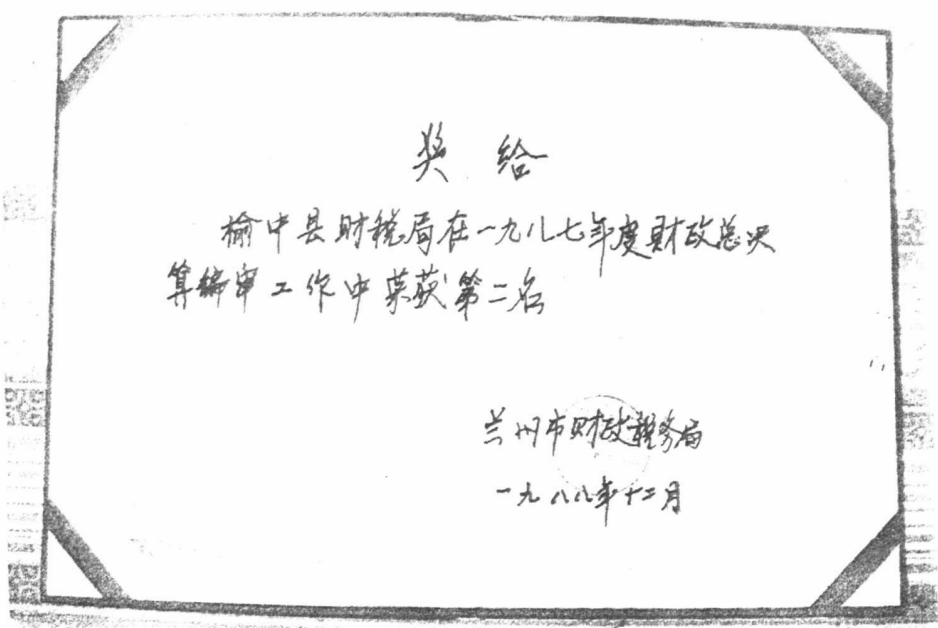 奖给
榆中县财税局在一九八七年度财政总决
算编审工作中荣获第二名
兰州市财政税务局
一九八八年十二月